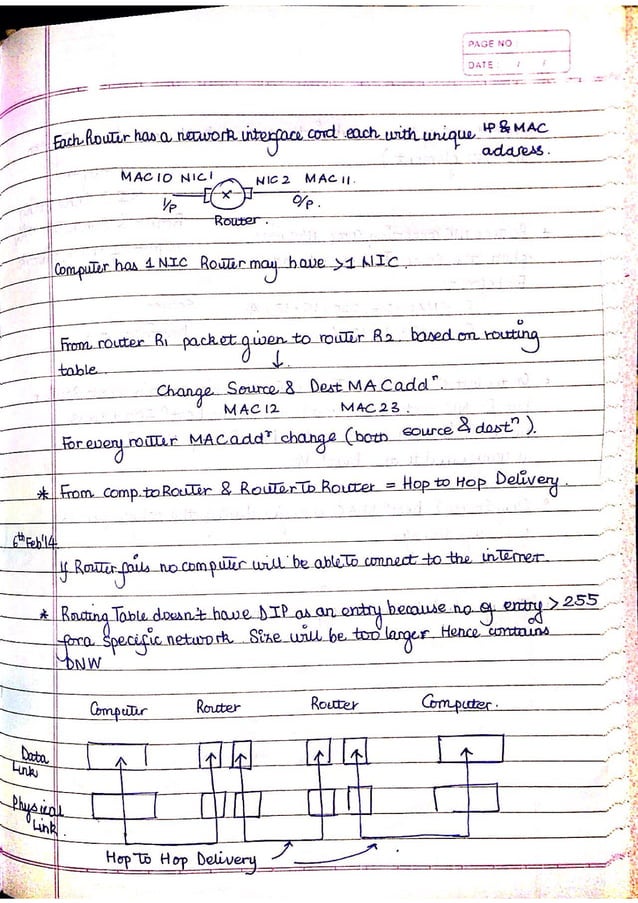 PAGE NO
DATE : / /
Each Router has a network interface card each with unique IP & MAC
address.
MAC10 NIC1 NIC2 MAC11.
I/P X O/P.
Router.
Computer has 1 NIC Router may have >1 NIC.
From router R1 packet given to router R2 based on routing
table. ↓
Change Source & Dest MAC addⁿ.
MAC12 MAC23.
For every router MAC addʳ change (both source & destⁿ).
* From comp. to Router & Router To Router = Hop to Hop Delivery.
6th Feb'14
If Router fails no computer will be able to connect to the internet.
* Routing Table doesn't have DIP as an entry because no. of entry > 255
for a specific network. Size will be too larger. Hence contains
DNW
Computer Router Router Computer.
Data
Link
Physical
Link.
Hop To Hop Delivery